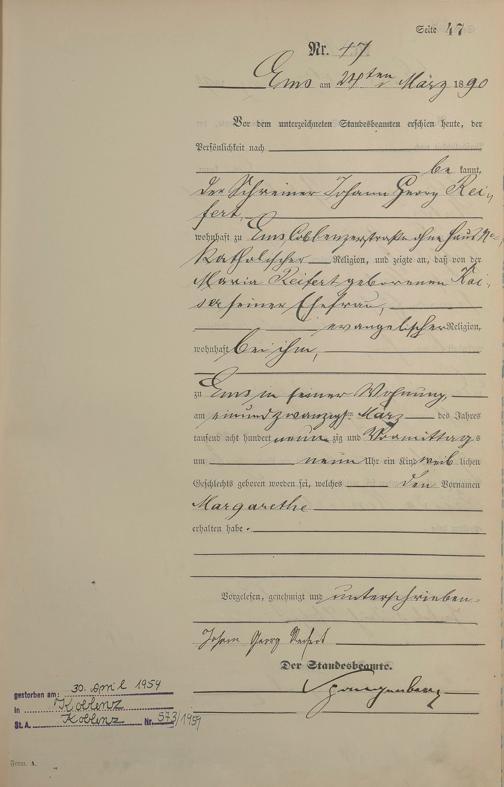 Seite 47
Nr. 47
Ems am 24ten März 1890
Vor dem unterzeichneten Standesbeamten erschien heute, der
Persönlichkeit nach
be kannt,
der Schreiner Johann Georg Rei-
fert,
wohnhaft zu Ems Coblenzerstraße ohne Haus No
katholischer Religion, und zeigte an, daß von der
Maria Reifert geborenen Kai-
ser seiner Ehefrau,
evangelischer Religion,
wohnhaft bei ihm,
zu Ems in seiner Wohnung,
am einundzwanzigsten März des Jahres
tausend acht hundert neun zig und Vormittags
um neun Uhr ein Kind weib lichen
Geschlechts geboren worden sei, welches den Vornamen
Margarethe
erhalten habe.
Vorgelesen, genehmigt und unterschrieben
Johann Georg Reifert
Der Standesbeamte.
Spangenberg
gestorben am: 30. April 1959
in Koblenz
St. A. Koblenz Nr. 573/1959
Form. A.